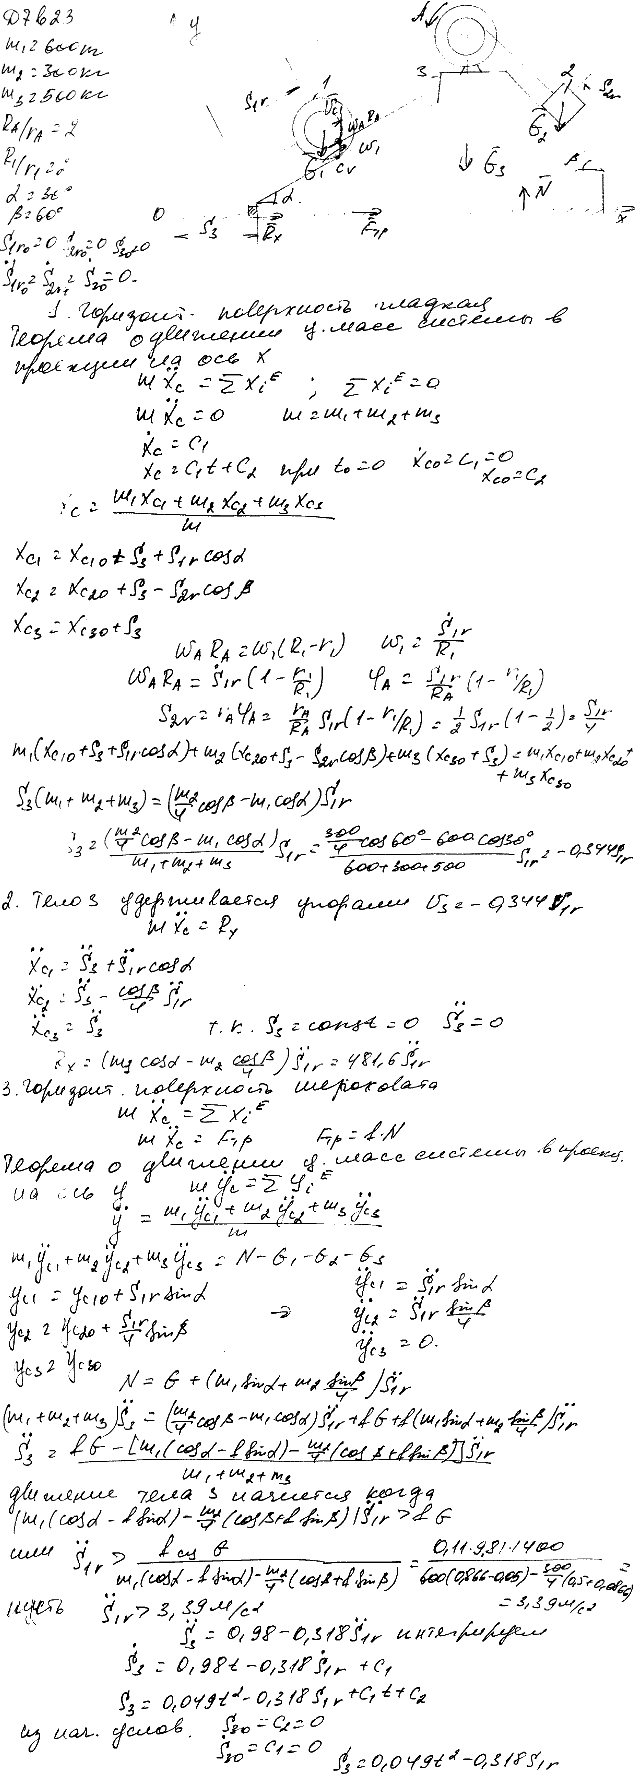 Д7 В23
m₁ = 600 кг
m₂ = 300 кг
m₃ = 500 кг
R_A/r_A = 2
R₁/r₁ = 2
α = 30°
β = 60°
S₁r₀ = 0 S₂r₀ = 0 S₃₀ = 0
Ṡ₁r₀ = Ṡ₂r₀ = Ṡ₃₀ = 0.
y
A
3
2
S₂r
G₂
1
S₁r
V_C1
ω_A R_A
ω₁
G₁
C_V
α
G₃
N
β
x
0
S₃
R_x
F_тр
1. Горизонт. поверхность гладкая
Теорема о движении ц. масс системы в
проекции на ось X
m ẍ_c = Σ X_i^E ; Σ X_i^E = 0
m ẍ_c = 0 m = m₁ + m₂ + m₃
ẋ_c = C₁
x_c = C₁t + C₂ при t₀ = 0 ẋ_c0 = C₁ = 0
x_c0 = C₂
x_c = (m₁x_c1 + m₂x_c2 + m₃x_c3)/m
x_c1 = x_c10 + S₃ + S₁r cosα
x_c2 = x_c20 + S₃ − S₂r cosβ
x_c3 = x_c30 + S₃
ω_A R_A = ω₁(R₁ − r₁) ω₁ = Ṡ₁r/R₁
ω_A R_A = Ṡ₁r (1 − r₁/R₁) φ_A = S₁r/R_A (1 − r₁/R₁)
S₂r = r_A φ_A = r_A/R_A S₁r (1 − r₁/R₁) = 1/2 S₁r (1 − 1/2) = S₁r/4
m₁(x_c10 + S₃ + S₁r cosα) + m₂(x_c20 + S₃ − S₂r cosβ) + m₃(x_c30 + S₃) = m₁x_c10 + m₂x_c20 +
+ m₃x_c30
S₃(m₁ + m₂ + m₃) = (m₂/4 cosβ − m₁ cosα) S₁r
S₃ = (m₂/4 cosβ − m₁ cosα)/(m₁ + m₂ + m₃) S₁r = (300/4 cos60° − 600 cos30°)/(600 + 300 + 500) S₁r = −0,344 S₁r
2. Тело 3 удерживается упорами V₃ = −0,344 V₁r
m ẍ_c = R_x
ẍ_c1 = S̈₃ + S̈₁r cosα
ẍ_c2 = S̈₃ − cosβ/4 S̈₁r
ẍ_c3 = S̈₃ т.к. S₃ = const = 0 S̈₃ = 0
R_x = (m₁ cosα − m₂ cosβ/4) S̈₁r = 481,6 S̈₁r
3. Горизонт. поверхность шероховата
m ẍ_c = Σ X_i^E
m ẍ_c = F_тр F_тр = f·N
Теорема о движении ц. масс системы в проекц.
на ось y m ÿ_c = Σ y_i^E
ÿ = (m₁ÿ_c1 + m₂ÿ_c2 + m₃ÿ_c3)/m
m₁ÿ_c1 + m₂ÿ_c2 + m₃ÿ_c3 = N − G₁ − G₂ − G₃
y_c1 = y_c10 + S₁r sinα ÿ_c1 = S̈₁r sinα
y_c2 = y_c20 + S₁r/4 sinβ ⇒ ÿ_c2 = S̈₁r sinβ/4
y_c3 = y_c30 ÿ_c3 = 0.
N = G + (m₁ sinα + m₂ sinβ/4) S̈₁r
(m₁ + m₂ + m₃) S̈₃ = (m₂/4 cosβ − m₁ cosα) S̈₁r + fG + f(m₁ sinα + m₂ sinβ/4) S̈₁r
S̈₃ = (fG − [m₁(cosα − f sinα) − m₂/4 (cosβ + f sinβ)] S̈₁r)/(m₁ + m₂ + m₃)
движение тела 3 начнется когда
[m₁(cosα − f sinα) − m₂/4 (cosβ + f sinβ)] S̈₁r > fG
или S̈₁r > f G/(m₁(cosα − f sinα) − m₂/4 (cosβ + f sinβ)) = 0,11·9,81·1400/(600(0,866 − 0,05) − 300/4 (0,5 + 0,0866)) =
= 3,39 м/с²
пусть S̈₁r > 3,39 м/с²
S̈₃ = 0,98 − 0,318 S̈₁r интегрируем
Ṡ₃ = 0,98t − 0,318 Ṡ₁r + C₁
S₃ = 0,049t² − 0,318 S₁r + C₁t + C₂
из нач. услов. S₃₀ = C₂ = 0
Ṡ₃₀ = C₁ = 0 S₃ = 0,049t² − 0,318 S₁r